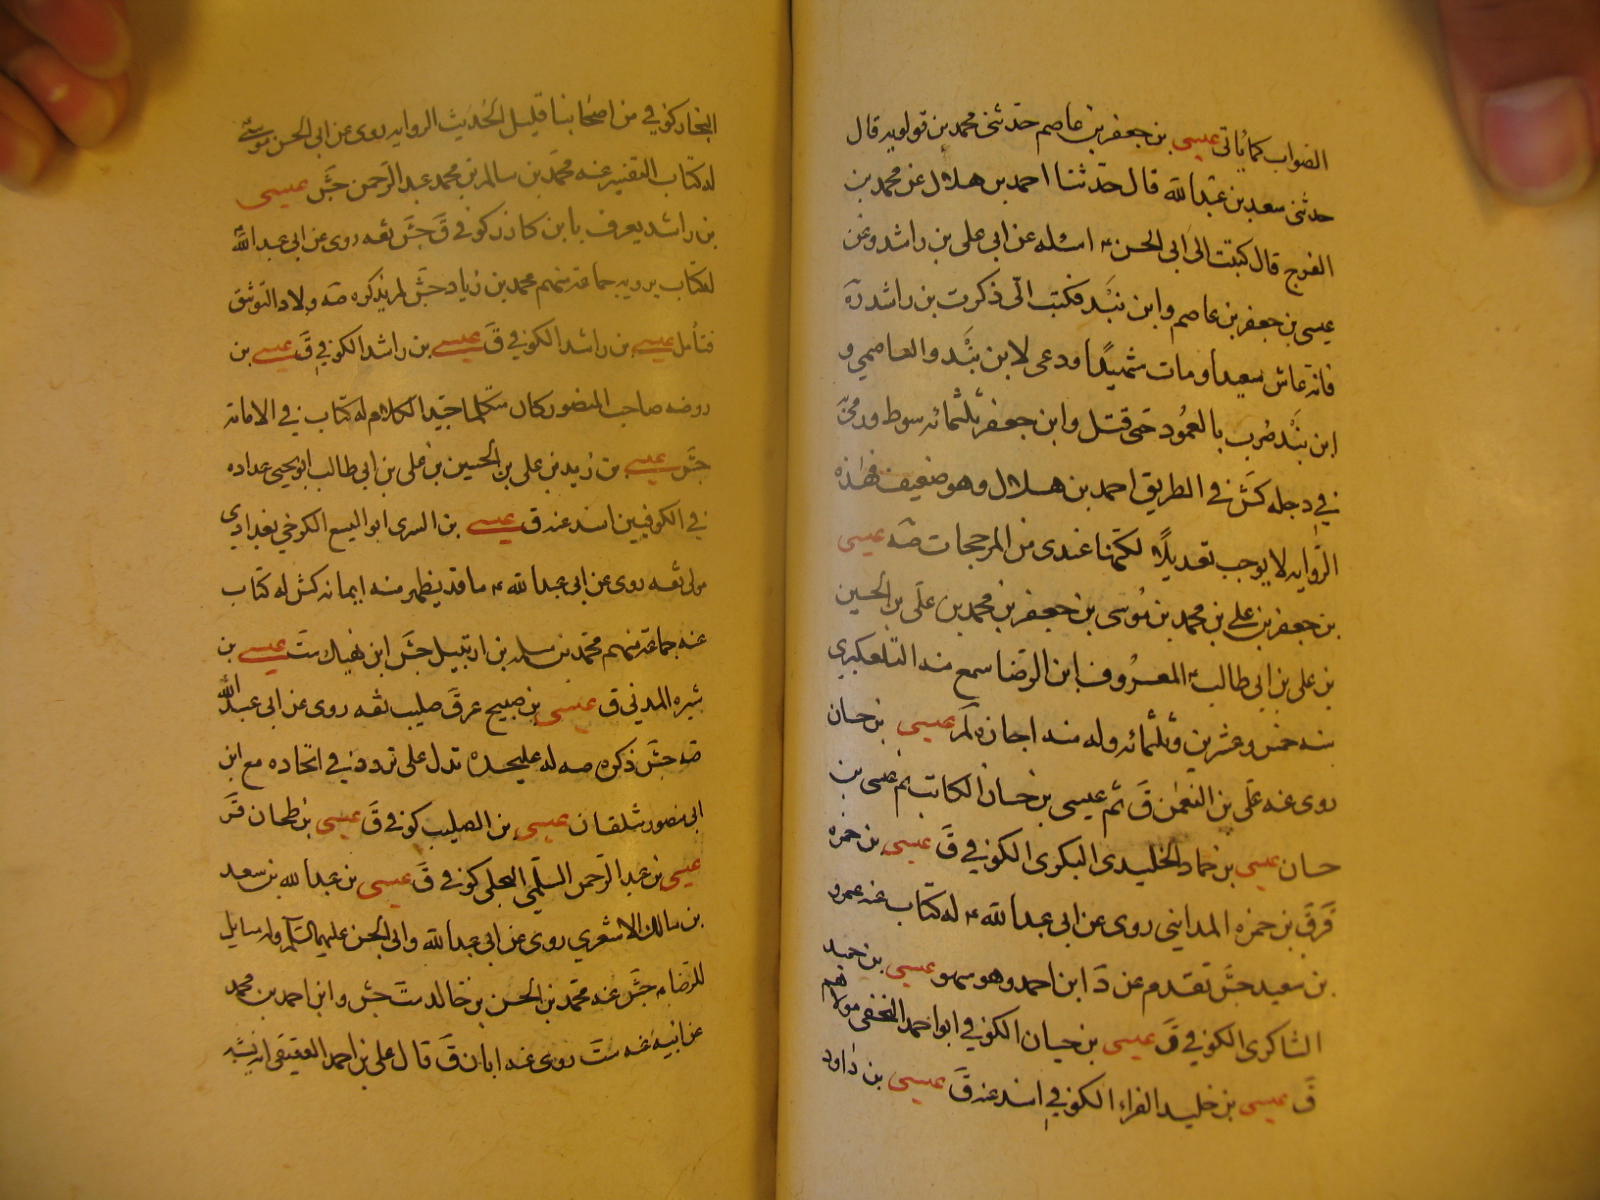 الصواب كما يأتى عيسى بن جعفر بن عاصم حدثنى محمد بن قولويه قال
حدثنى سعد بن عبد الله قال حدثنا احمد بن هلال عن محمد بن
الفرج قال كتبت الى ابى الحسن ع اسئله عن ابى على بن راشد وعن
عيسى بن جعفر بن عاصم وابن بند فكتب الىّ ذكرت بن راشد ره
فانه عاش سعيدا ومات شهيدًا ودعى لابن بند والعاصمى و
ابن بند ضرب بالعمود حتى قتل وابن جعفر ثلثمائه سوط ورمى
فى دجله كش فى الطريق احمد بن هلال وهو ضعيف فهذه
الروايه لا يوجب تعديلًا لكنها عندى من المرجحات صه عيسى
بن جعفر بن على بن محمد بن موسى بن جعفر بن محمد بن على بن الحسين
بن على بن ابى طالب ع المعروف بابن الرضا سمع منه التلعكبرى
سنه خمس وعشرين وثلثمائه وله منه اجازه لم عيسى بن حسان
روى عنه على بن النعمن ق ثم عيسى بن حسان الكاتب ثم عيسى بن
حسان عيسى بن حماد الخليدى البكرى الكوفى ق عيسى بن حمزه
ق ق بن حمزه المداينى روى عن ابى عبد الله ع له كتاب عنه عمرو
بن سعيد جش تقدم عن د ابن احمد وهو سهو عيسى بن حميد
الشاكرى الكوفى ق عيسى بن حيان الكوفى ابو احمد النخفى مولاهم
ق عيسى بن خليد الفراء الكوفى اسند عنه ق عيسى بن داود
النجار كوفى من اصحابنا قليل الحديث الروايه روى عن ابى الحسن موسى
له كتاب التفسير عنه محمد بن سالم بن محمد عبد الرحمن جش عيسى
بن راشد يعرف بابن كازر كوفى ق جش ثقه روى عن ابى عبد الله
له كتاب يرويه جماعة منهم محمد بن زياد جش لم يذكره صه ولا د التوثيق
فتأمل عيسى بن راشد الكوفى ق عيسى بن راشد الكوفى ق عيسى بن
روضه صاحب المنصور كان متكلما جيد الكلام له كتاب فى الامامة
جش عيسى بن زيد بن على بن الحسين بن على بن ابى طالب ابو يحيى عداده
فى الكوفيين اسند عنه ق عيسى بن السرى ابو اليسع الكرخى بغدادى
مولى ثقه روى عن ابى عبد الله ع ما قد يظهر منه ايمانه كش له كتاب
عنه جماعة منهم محمد بن سلمه بن ارتبيل جش ابن نهيك ست عيسى بن
شبره المدنى ق عيسى بن صبيح عرق صليب ثقه روى عن ابى عبد الله
صه جش ذكره صه له عليحده تدل على تردد فى اتحاده مع ابن
ابى منصور شلقان عيسى بن الصليب كوفى ق عيسى بن طحان ق ر
عيسى بن عبد الرحمن السلمى البجلى كوفى ق عيسى بن عبد الله بن سعد
بن مالك الاشعرى روى عن ابى عبد الله وابى الحسن عليهما السلم وله مسايل
للرضا ع جش عنه محمد بن الحسن بن خالد ست جش وابن احمد بن محمد
عن ابيه عنه ست روى عنه ابان ق قال على بن احمد العقيقى انه يشبه